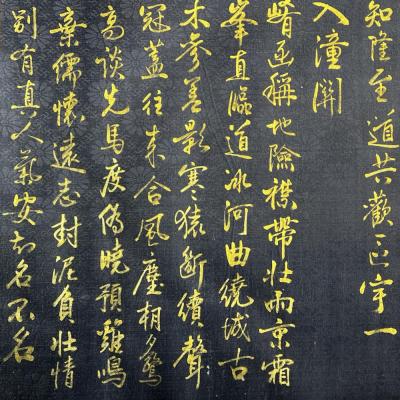 知隆至道共歡區宇一
入潼關
崤函稱地險襟帶壯兩京霜
峯直臨道冰河曲繞城古
木參差影寒猿斷續聲
冠蓋往来合風塵朝夕驚
高談先馬度偽曉預雞鳴
棄繻懷遠志封泥負壯情
別有真人氣安知名不名